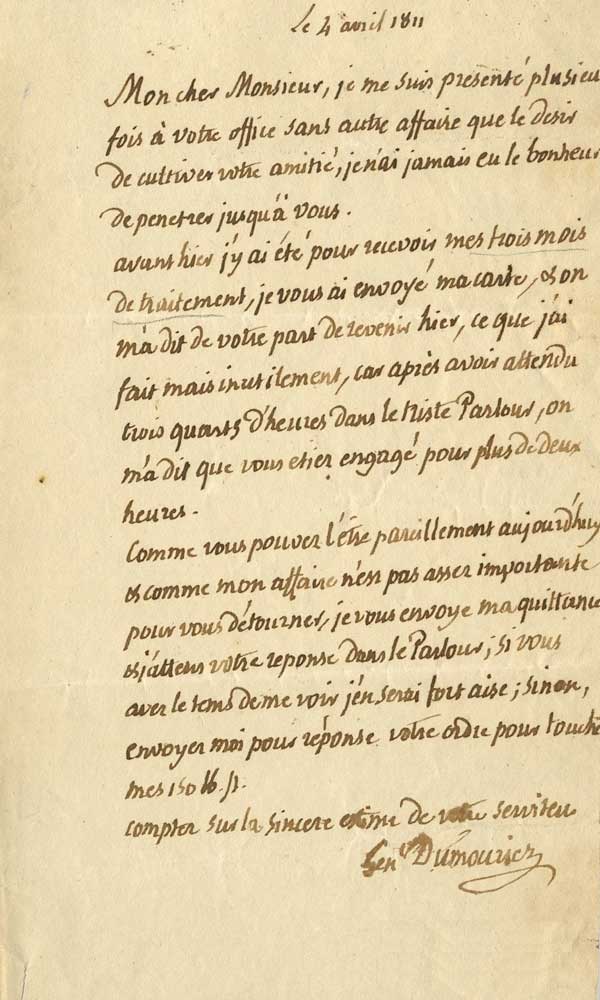 Le 4 avril 1811
Mon cher Monsieur, je me suis presenté plusieu
fois à votre office sans autre affaire que le desir
de cultiver votre amitié, je n'ai jamais eu le bonheur
de penetrer jusqu'à vous.
avant hier j'y ai été pour recevoir mes trois mois
de traitement, je vous ai envoyé ma carte, & on
m'a dit de votre part de revenir hier, ce que j'ai
fait mais inutilement, car après avoir attendu
trois quarts d'heures dans le triste Parlour, on
m'a dit que vous etiez engagé pour plus de deux
heures.
Comme vous pouvez l'être pareillement aujourd'huy
& comme mon affaire n'est pas assez importante
pour vous détourner, je vous envoye ma quittance
& j'attens votre reponse dans le Parlour; si vous
avez le tems de me voir j'en serai fort aise; sinon,
envoyez moi pour réponse votre ordre pour touche
mes 150 lb. st.
comptez sur la sincere estime de votre serviteu
Gen.al Dumouriez